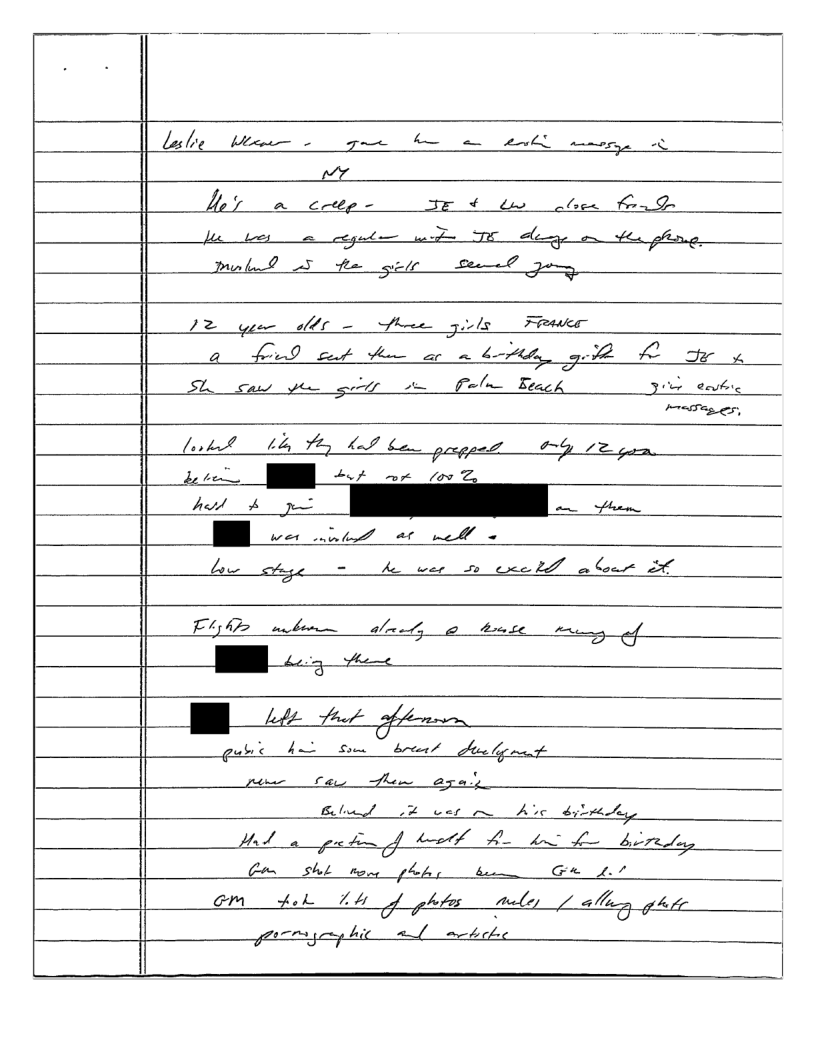 Leslie - gave him a erotic massage in
NY
He's a creep - JE & LW close friends
He was a regular with JE always on the phone.
involved w the girls several young
12 year olds - three girls FRANCE
a friend sent them as a birthday gift for JE to
She saw the girls in Palm Beach give erotic
massages.
looked like they had been prepped. only 12 years
but not 100%
had to give on them
was involved as well -
Low stage - he was so excited about it.
Flights unknown already @ house
being there
left that afternoon
pubic hair some breast development
never saw them again
Believed it was on his birthday
Had a picture of herself for him for birthday
shot more photos
GM took lots of photos nudes / photos
pornographic and artistic